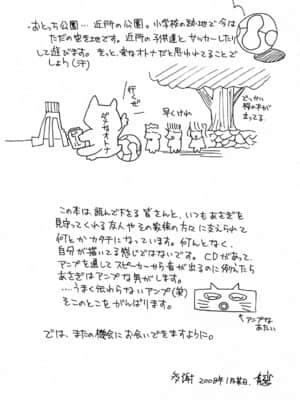 ・おとっち公園… 近所の公園。小学校の跡地で今は
ただの空き地です。近所の子供達と サッカーしたり
して遊びます。きっと、変なオトナだと思われてることで
しょう(汗)
行くぜ
ダメなオトナ
早くけれ
でっかい
桜の木が
立ってる
この本は、読んで下さる 皆さんと、いつもあさぎを
見守ってくれる友人やその家族の方々に支えられて
何とか カタチになっています。何となく、
自分が描いてる感じではないです。CDがあって、
アンプを通してスピーカーから音が出るのに例えたら
あさぎはアンプな気がします。
…うまく伝わらないアンプ(笑)
そこのとこを がんばります。
アンプな
あたい
では、またの機会にお会いできますように。
多謝 2008年1月某日.